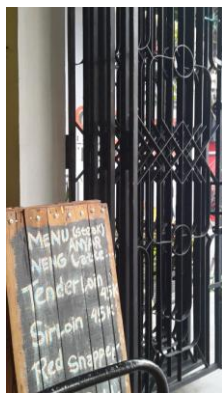 MENU (Steak)
ANYAR
NENG
TenderLoin 45K
SirLoin 45K
Red Snapper